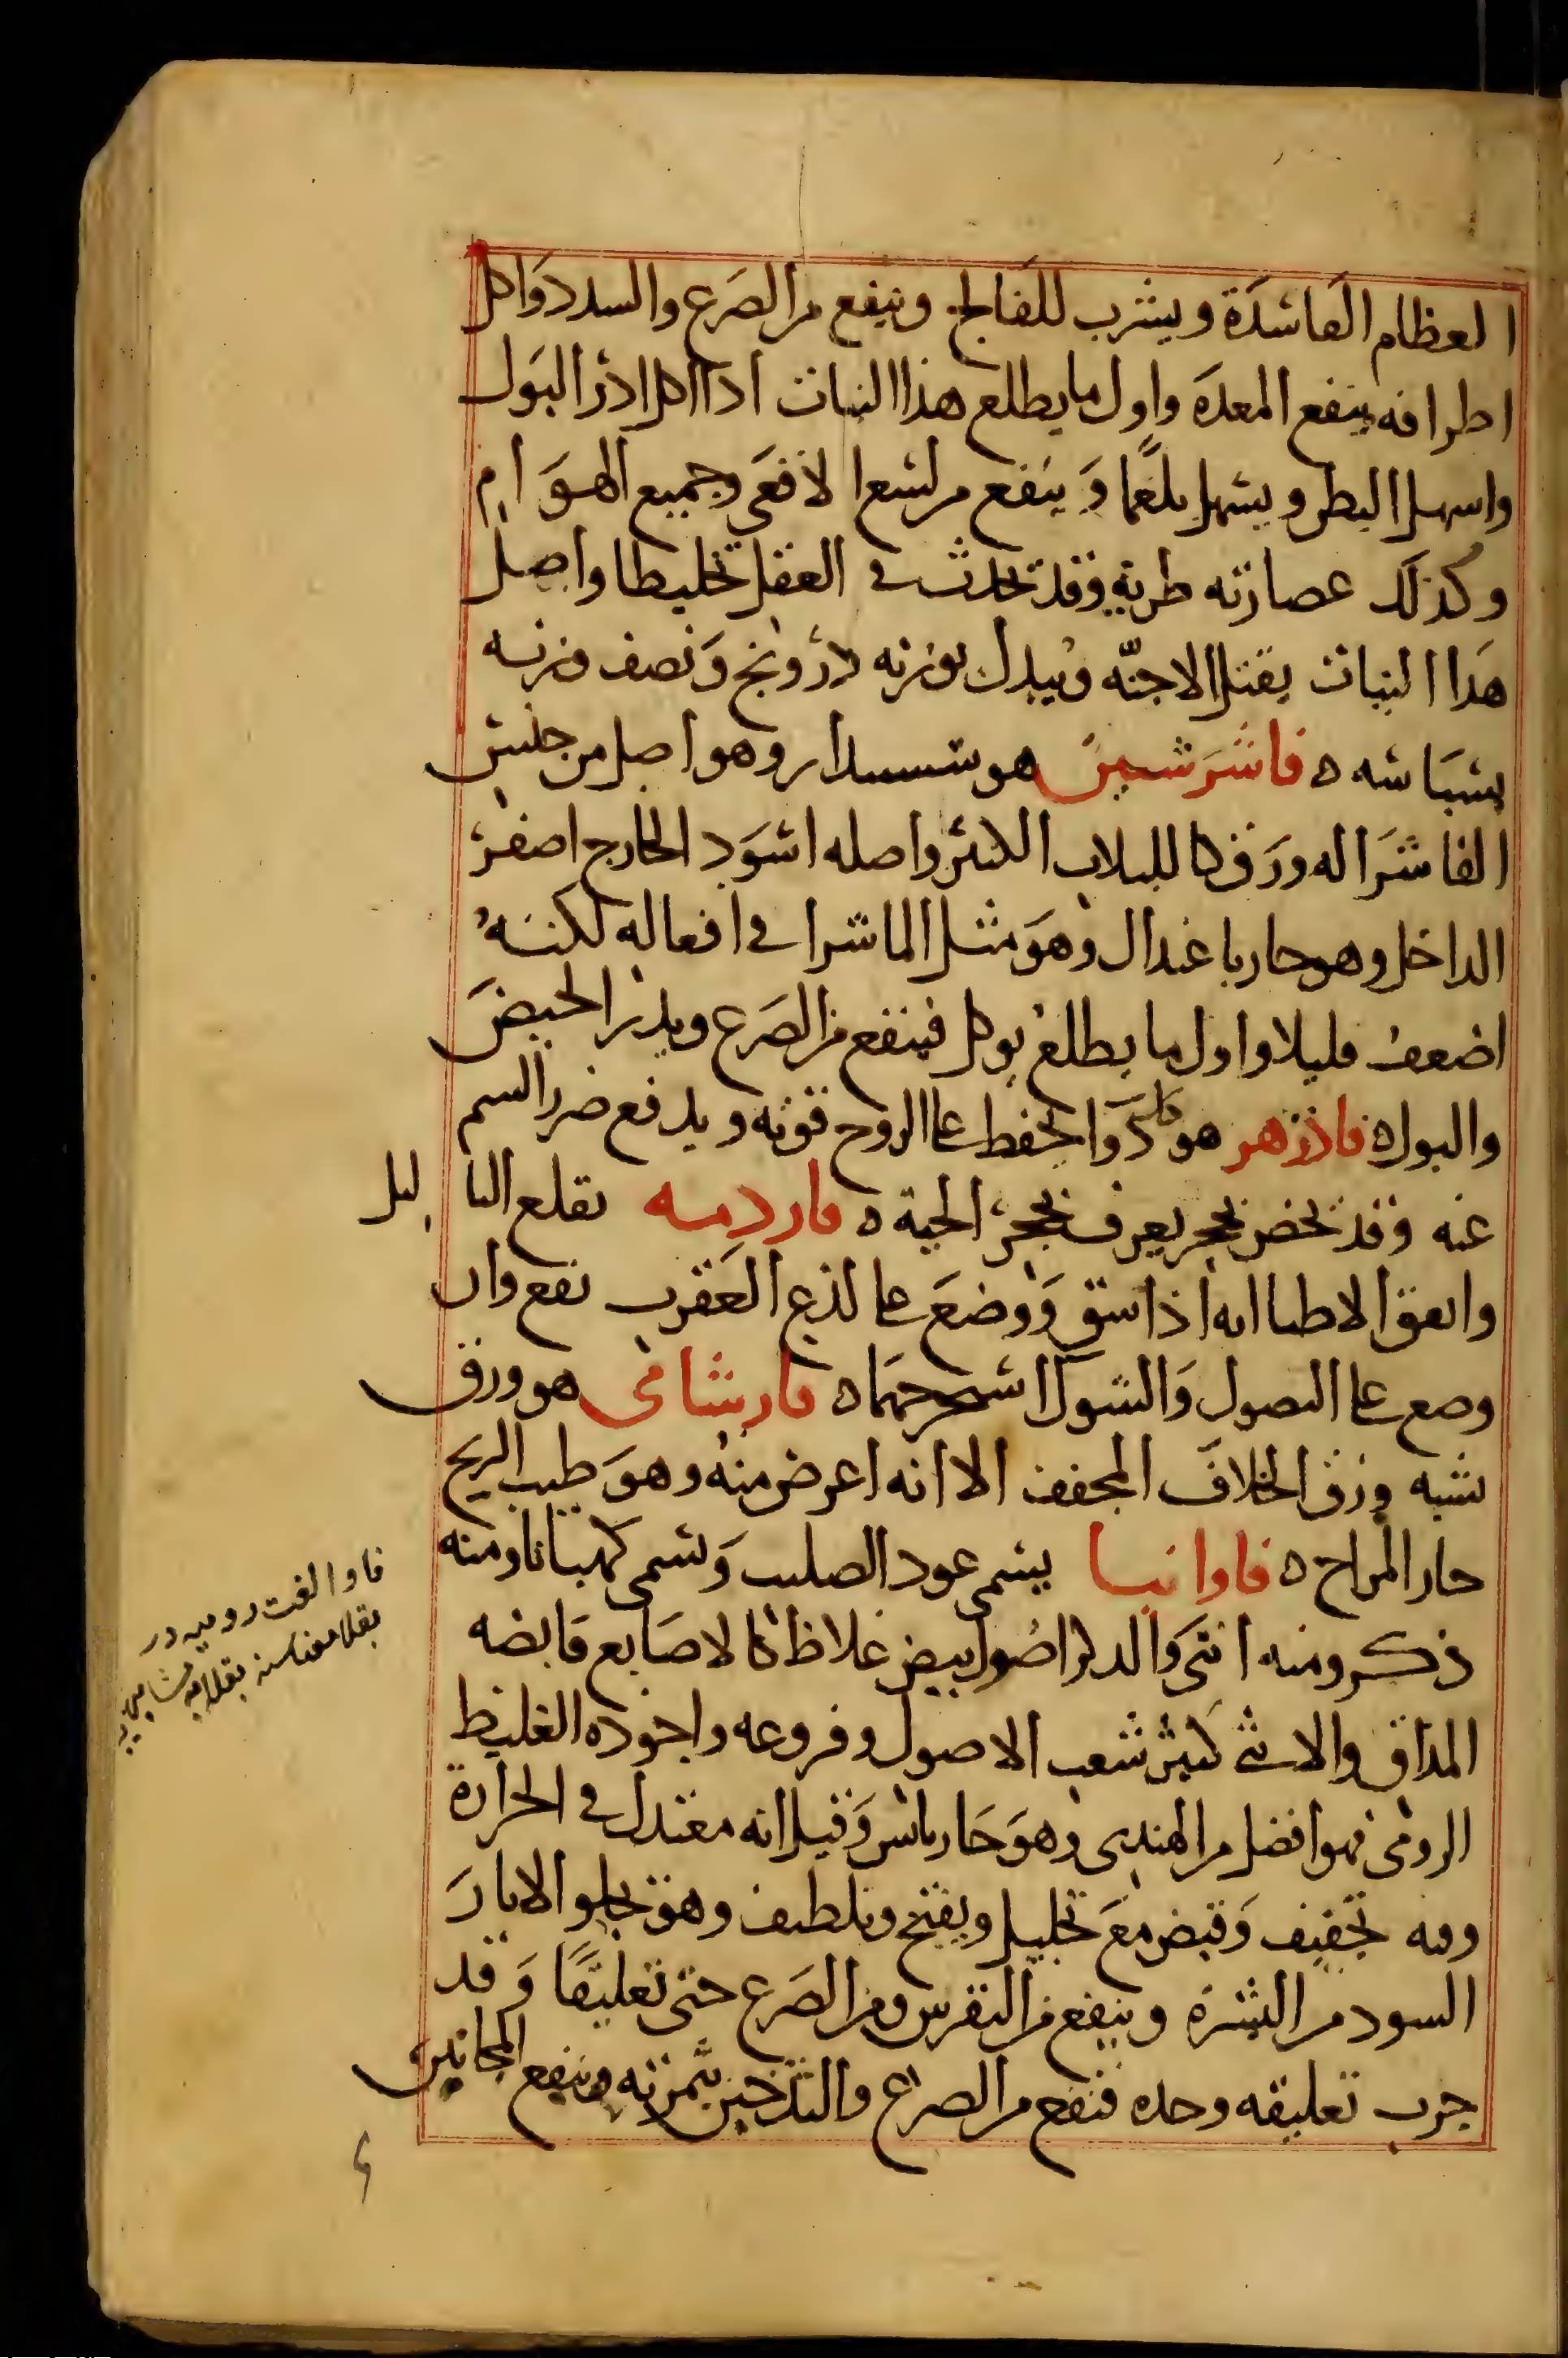 العظام الفاسدة ويشرب للفالج وينفع من الصرع والسدد واكل
اطرافه ينفع المعدة واول ما يطلع هذا النبات اذا اكل ادر البول
واسهل البطن ويسهل بلغما وينفع من لسع الافعى وجميع الهوام
وكذلك عصارته طرية وقد تحدث في العقل تخليطا واصل
هذا النبات يقتل الاجنّه ويبدل بوزنه درونج ونصف وزنه
بسباسه ه فاشرشين هو وهو اصل من جنس
الفاشرا له ورق كاللبلاب الكبير واصله اسود الخارج اصفر
الداخل وهو حار باعتدال وهو مثل الماشرا في افعاله لكنه
اضعف قليلا واول ما يطلع يوكل فينفع من الصرع ويدر الحيض
والبول ه فاذزهر هو كل دوا يحفظ على الروح قوته ويدفع ضرر السم
عنه وقد تخص بحجر يعرف بحجر الحية ه يقلع الثاليل
واتفق الاطبا انه اذا سق ووضع على لذع العقرب نفع وان
وضع على النصول والشوك استخرجها ه مارشامى هو ورق
يشبه ورق الخلاف المجفف الا انه اعرض منه وهو طيب الريح
حار المزاج ه فاوانيا يسمى عود الصليب ويسمى كهيانا ومنه
ذكر ومنه انثى والذكر اصول بيض غلاظ كالاصابع قابضه
المذاق والانثى كثير شعب الاصول وفروعه واجوده الغليظ
الرومى فهو افضل من الهندى وهو حار يابس وقيل انه معتدل في الحرارة
وفيه تجفيف وقبض مع تحليل ويفتح وتلطيف وهو يجلو الاثار
السود من البشرة وينفع من النقرس ومن الصرع حتى تعليقا وقد
جرب تعليقه وحده فنفع من الصرع والتدخين بثمرته وينفع المجانين